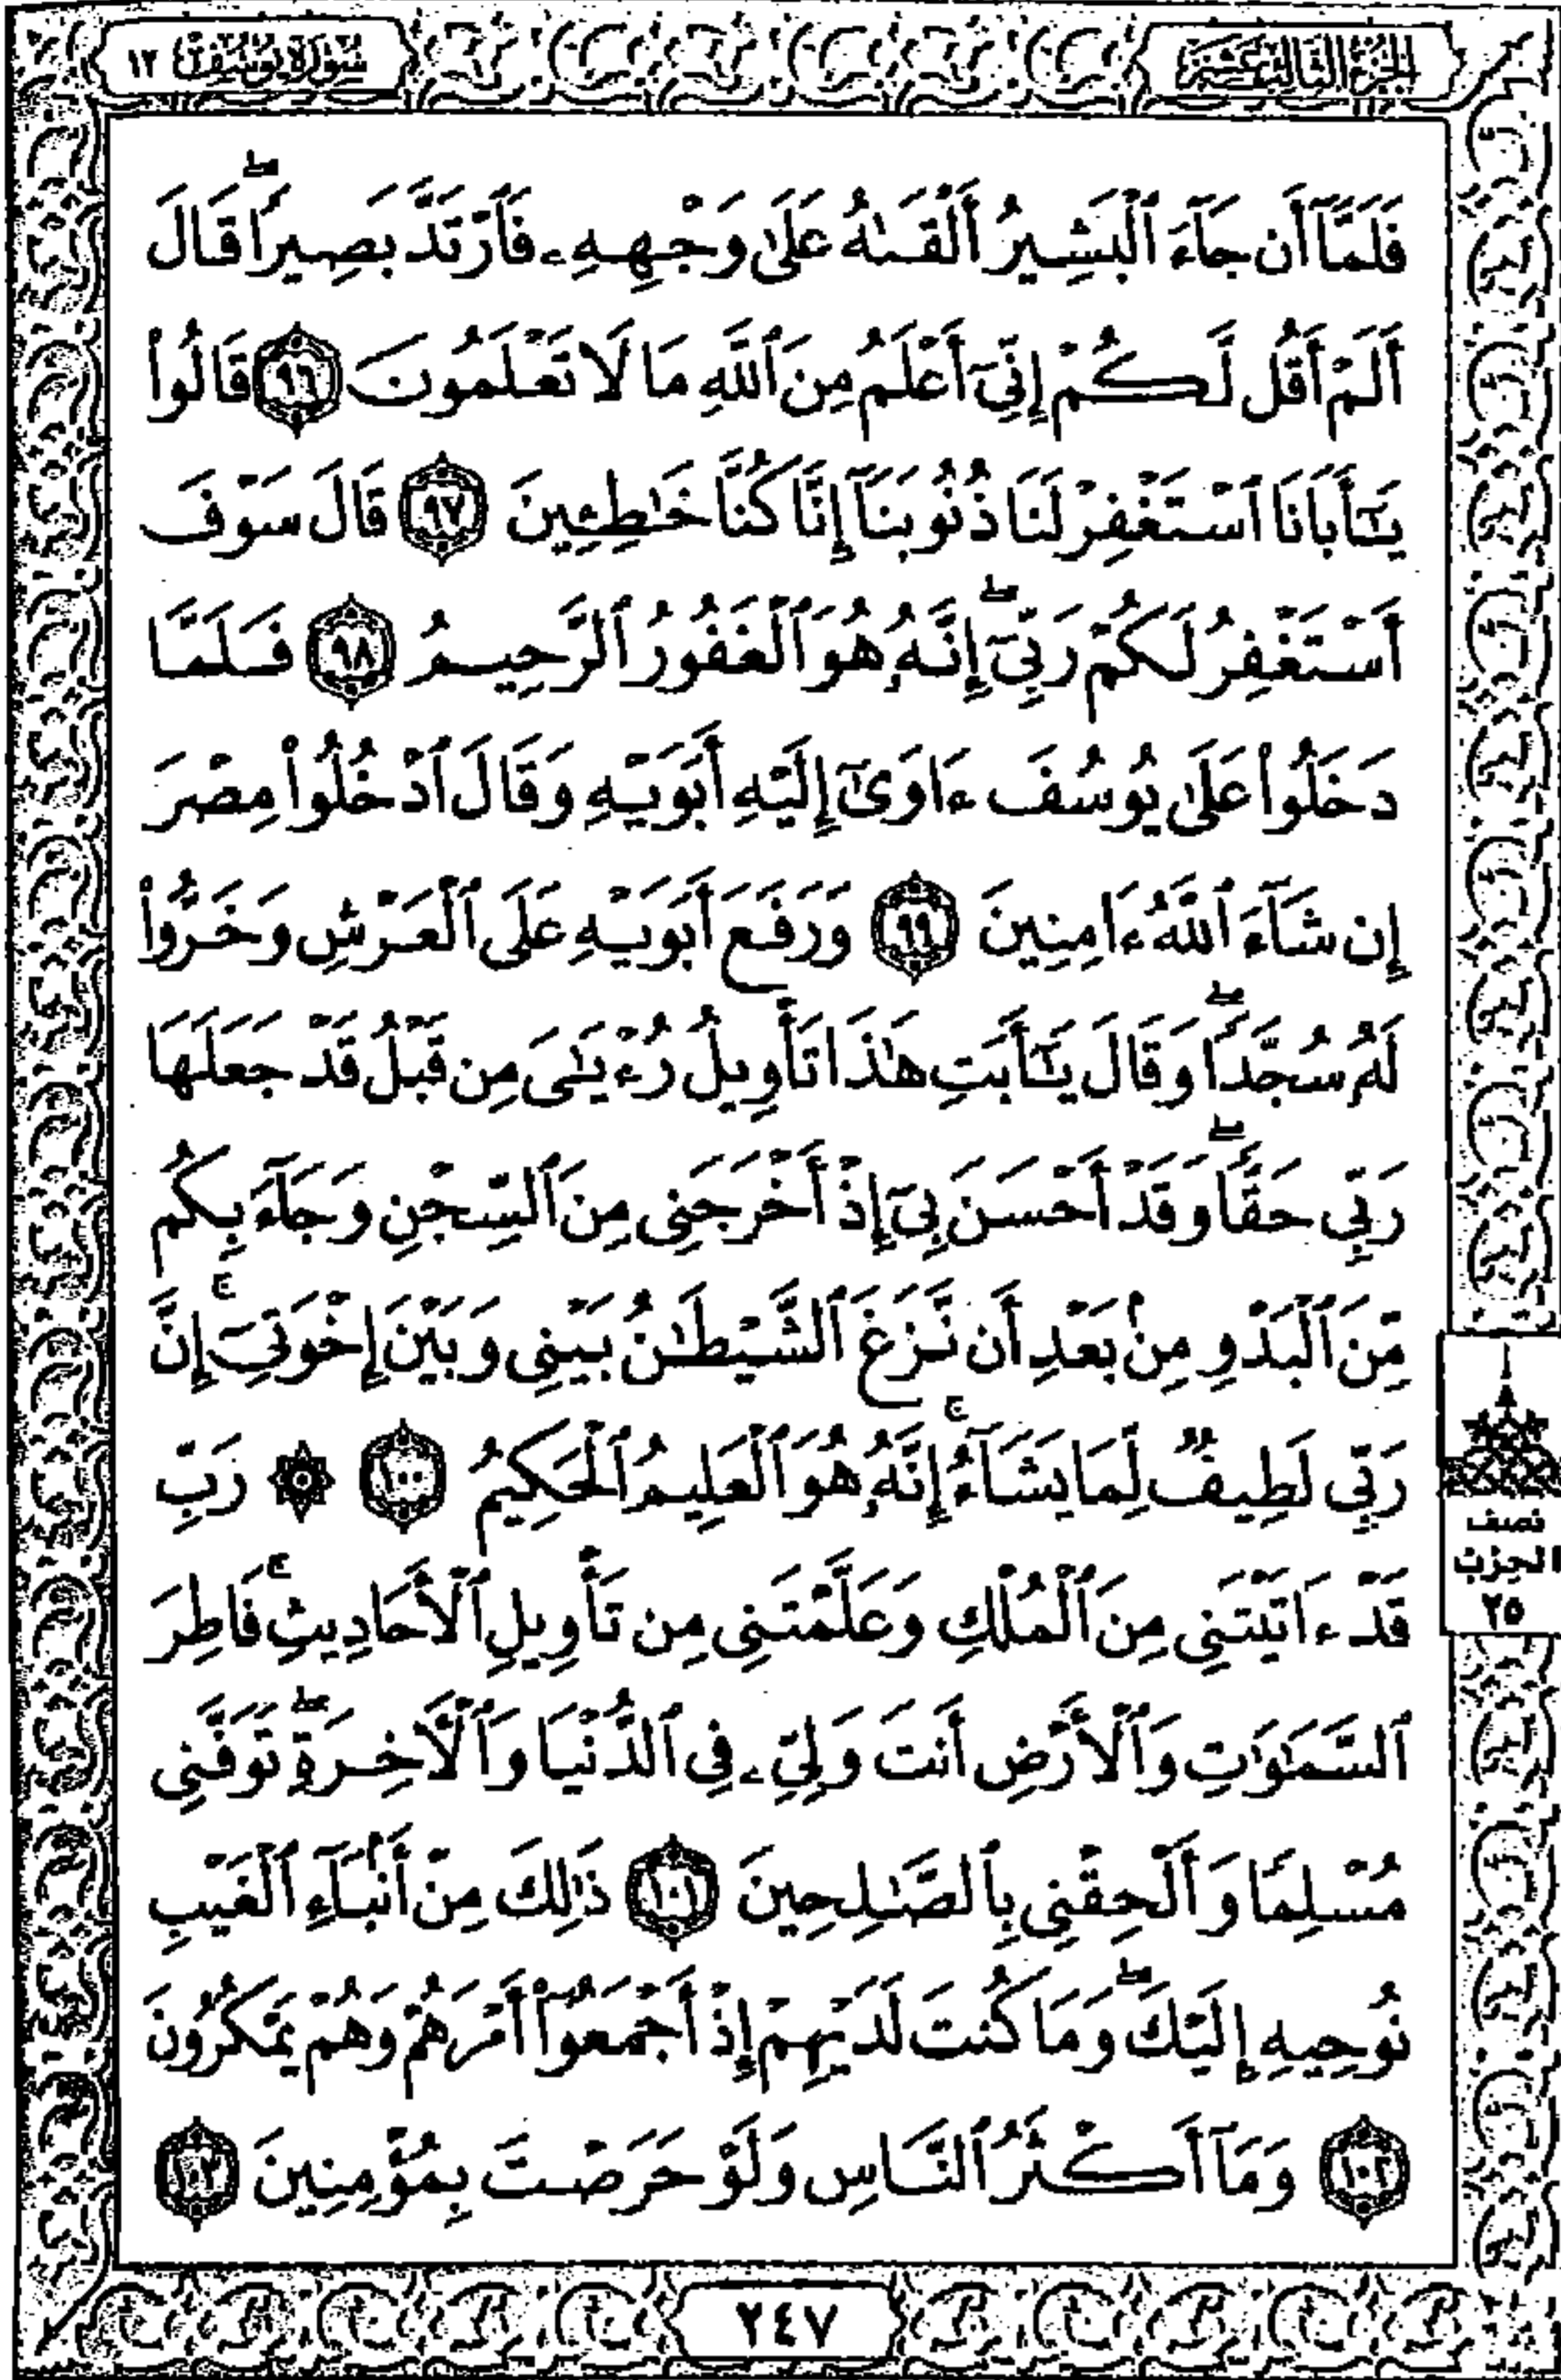 الجزء الثالث عشر
سورة يوسف ١٢
فَلَمَّآ أَن جَآءَ ٱلْبَشِيرُ أَلْقَىٰهُ عَلَىٰ وَجْهِهِۦ فَٱرْتَدَّ بَصِيرًاۖ قَالَ
أَلَمْ أَقُل لَّكُمْ إِنِّىٓ أَعْلَمُ مِنَ ٱللَّهِ مَا لَا تَعْلَمُونَ ٩٦ قَالُوا۟
يَـٰٓأَبَانَا ٱسْتَغْفِرْ لَنَا ذُنُوبَنَآ إِنَّا كُنَّا خَـٰطِـِٔينَ ٩٧ قَالَ سَوْفَ
أَسْتَغْفِرُ لَكُمْ رَبِّىٓۖ إِنَّهُۥ هُوَ ٱلْغَفُورُ ٱلرَّحِيمُ ٩٨ فَلَمَّا
دَخَلُوا۟ عَلَىٰ يُوسُفَ ءَاوَىٰٓ إِلَيْهِ أَبَوَيْهِ وَقَالَ ٱدْخُلُوا۟ مِصْرَ
إِن شَآءَ ٱللَّهُ ءَامِنِينَ ٩٩ وَرَفَعَ أَبَوَيْهِ عَلَى ٱلْعَرْشِ وَخَرُّوا۟
لَهُۥ سُجَّدًاۖ وَقَالَ يَـٰٓأَبَتِ هَـٰذَا تَأْوِيلُ رُءْيَـٰىَ مِن قَبْلُ قَدْ جَعَلَهَا
رَبِّى حَقًّاۖ وَقَدْ أَحْسَنَ بِىٓ إِذْ أَخْرَجَنِى مِنَ ٱلسِّجْنِ وَجَآءَ بِكُم
مِّنَ ٱلْبَدْوِ مِنۢ بَعْدِ أَن نَّزَغَ ٱلشَّيْطَـٰنُ بَيْنِى وَبَيْنَ إِخْوَتِىٓۚ إِنَّ
رَبِّى لَطِيفٌ لِّمَا يَشَآءُۚ إِنَّهُۥ هُوَ ٱلْعَلِيمُ ٱلْحَكِيمُ ١٠٠ ۞ رَبِّ
قَدْ ءَاتَيْتَنِى مِنَ ٱلْمُلْكِ وَعَلَّمْتَنِى مِن تَأْوِيلِ ٱلْأَحَادِيثِۚ فَاطِرَ
ٱلسَّمَـٰوَٰتِ وَٱلْأَرْضِ أَنتَ وَلِىِّۦ فِى ٱلدُّنْيَا وَٱلْـَٔاخِرَةِۖ تَوَفَّنِى
مُسْلِمًا وَأَلْحِقْنِى بِٱلصَّـٰلِحِينَ ١٠١ ذَٰلِكَ مِنْ أَنۢبَآءِ ٱلْغَيْبِ
نُوحِيهِ إِلَيْكَۖ وَمَا كُنتَ لَدَيْهِمْ إِذْ أَجْمَعُوٓا۟ أَمْرَهُمْ وَهُمْ يَمْكُرُونَ
١٠٢ وَمَآ أَكْثَرُ ٱلنَّاسِ وَلَوْ حَرَصْتَ بِمُؤْمِنِينَ ١٠٣
نصف
الحزب
٢٥
٢٤٧